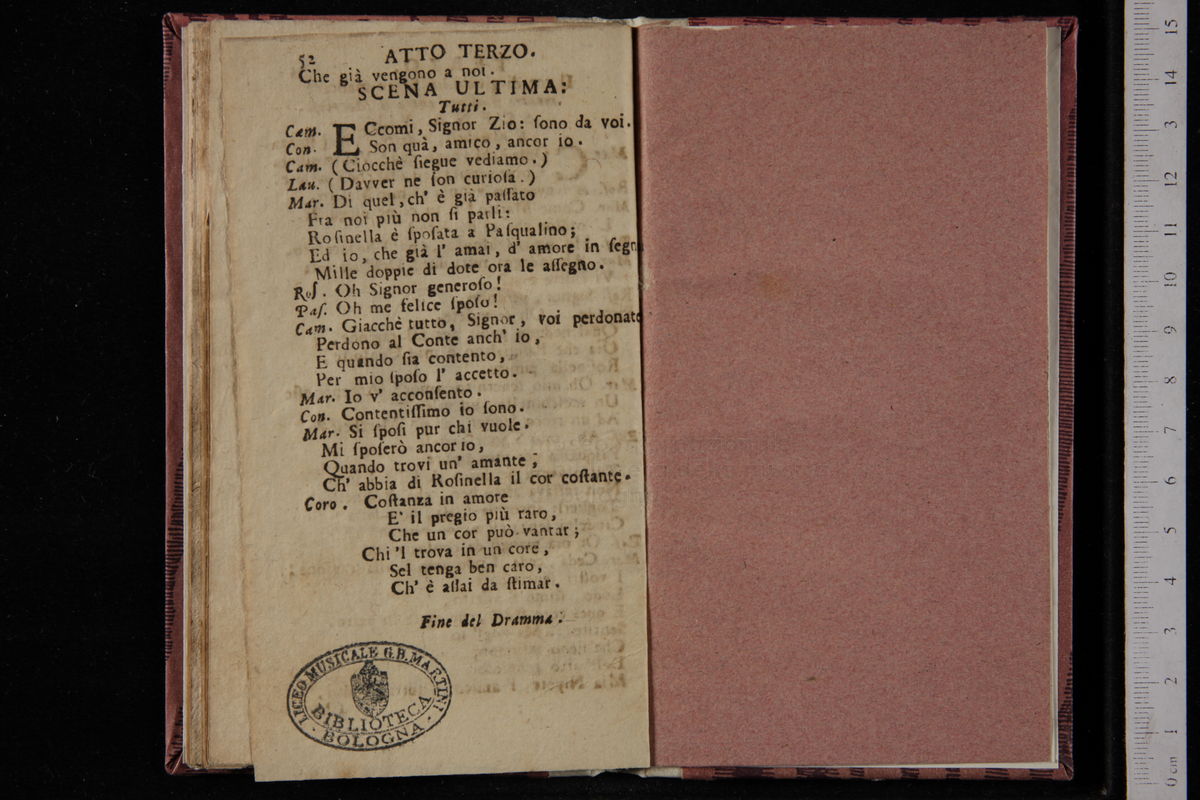 52 ATTO TERZO.
Che già vengono a noi.
SCENA ULTIMA:
Tutti.
Cam. ECcomi, Signor Zio: ſono da voi.
Con. Son quà, amico, ancor io.
Cam. (Ciocchè ſiegue vediamo.)
Lau. (Davver ne ſon curioſa.)
Mar. Di quel, ch' è già paſſato
Fra noi più non ſi parli:
Roſinella è ſpoſata a Paſqualino;
Ed io, che già l' amai, d' amore in ſegn
Mille doppie di dote ora le aſſegno.
Roſ. Oh Signor generoſo!
Paſ. Oh me felice ſpoſo!
Cam. Giacchè tutto, Signor, voi perdonate
Perdono al Conte anch' io,
E quando ſia contento,
Per mio ſpoſo l' accetto.
Mar. Io v' acconſento.
Con. Contentiſſimo io ſono.
Mar. Si ſpoſi pur chi vuole.
Mi ſpoſerò ancor io,
Quando trovi un' amante;
Ch' abbia di Roſinella il cor coſtante.
Coro. Coſtanza in amore
E' il pregio più raro,
Che un cor può vantar;
Chi 'l trova in un core,
Sel tenga ben caro,
Ch' è aſſai da ſtimar.
Fine del Dramma.
LICEO MUSICALE G.B. MARTINI
BIBLIOTECA
BOLOGNA
15
14
3
12
11
10
9
8
7
6
5
4
3
2
1
0 cm